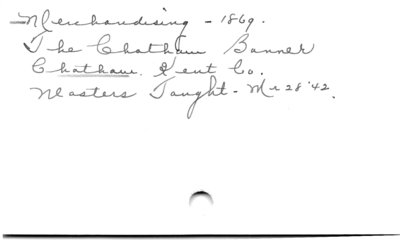 Merchandising - 1869.
The Chatham Banner
Chatham. Kent Co.
Masters Taught - Mr 28 '42.